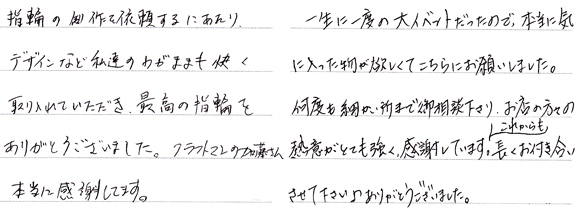 指輪の制作を依頼するにあたり、
デザインなど私達のわがままも快く
取り入れていただき、最高の指輪を
ありがとうございました。クラフトマンの加藤さん
本当に感謝してます。
一生に一度の大イベントだったので、本当に気
に入った物が欲しくてこちらにお願いしました。
何度も細かい所まで御相談下さり、お店の方々の
熱意がとても強く、感謝しています。これからも長くお付き合い
させて下さい♪ありがとうございました。